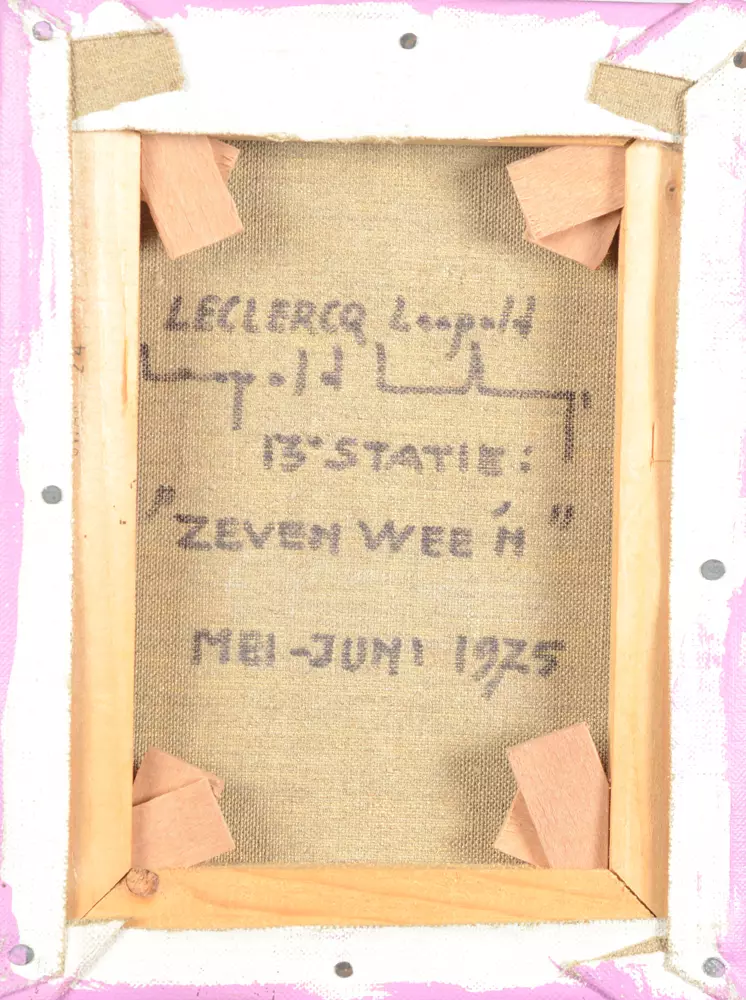 LECLERCQ Leopold
Leopold L
13e STATIE:
"ZEVEN WEEËN"
MEI-JUNI 1975